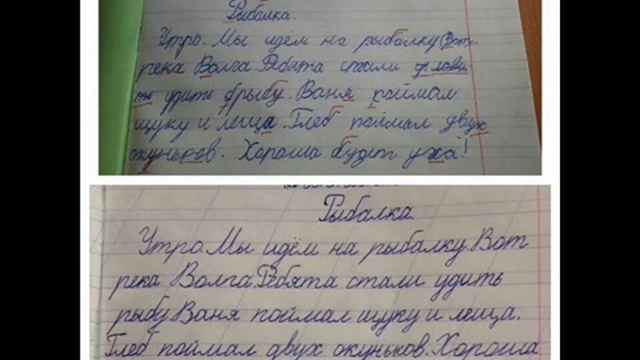 Рыбалка.
Утро. Мы идём на рыбалку. Вот
река Волга Ребята стали
удить рыбу. Ваня поймал
щуку и леща. Глеб поймал двух
окуньков. Хороша будет уха!
Рыбалка
Утро. Мы идём на рыбалку. Вот
река Волга. Ребята стали удить
рыбу. Ваня поймал щуку и леща.
Глеб поймал двух окуньков. Хороша